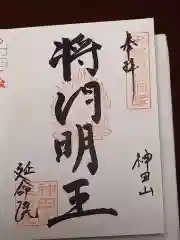 奉拝
将門明王
神田山
延命院